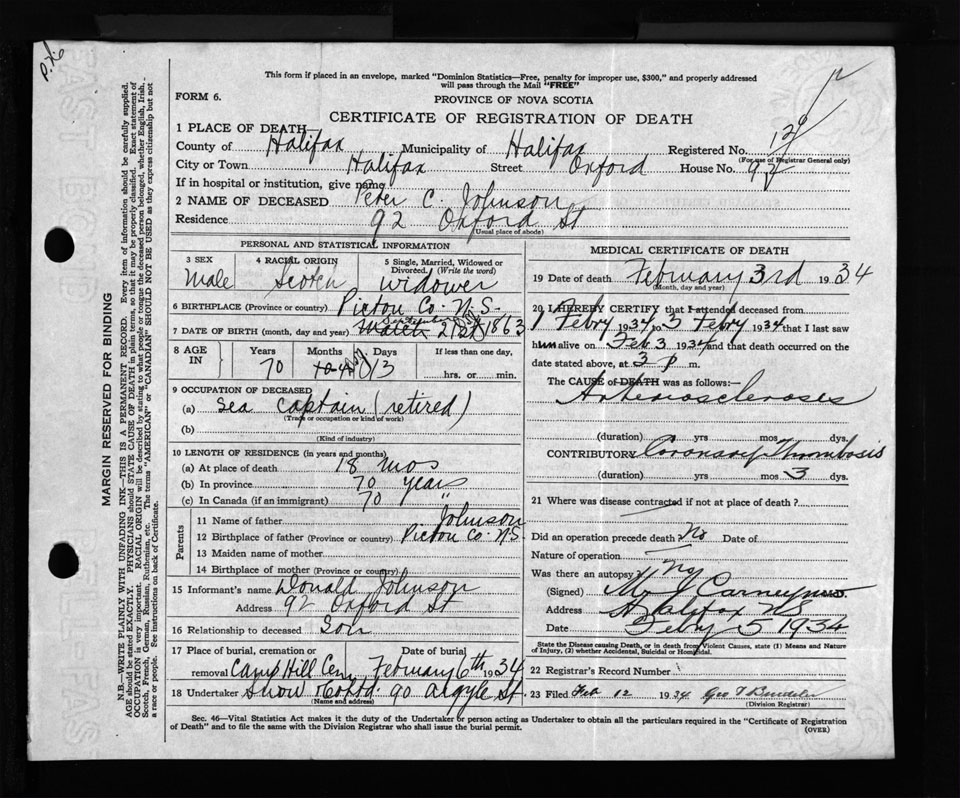 P. 76
This form if placed in an envelope, marked "Dominion Statistics—Free, penalty for improper use, $300," and properly addressed
will pass through the Mail "FREE"
FORM 6.
PROVINCE OF NOVA SCOTIA
CERTIFICATE OF REGISTRATION OF DEATH
1 PLACE OF DEATH
County of Halifax Municipality of Halifax Registered No.
(For use of Registrar General only)
City or Town Halifax Street Oxford House No. 92
If in hospital or institution, give name
2 NAME OF DECEASED Peter C. Johnson
Residence 92 Oxford St
(Usual place of abode)
PERSONAL AND STATISTICAL INFORMATION
3 SEX 4 RACIAL ORIGIN 5 Single, Married, Widowed or Divorced. (Write the word)
Male Scotch Widower
6 BIRTHPLACE (Province or country) Pictou Co. N.S.
7 DATE OF BIRTH (month, day and year) March 21st 1863
8 AGE IN Years Months Days If less than one day,
70 13 hrs. or min.
9 OCCUPATION OF DECEASED
(a) Sea Captain (retired)
(Trade or occupation or kind of work)
(b)
(Kind of industry)
10 LENGTH OF RESIDENCE (in years and months)
(a) At place of death 18 mos
(b) In province 70 years
(c) In Canada (if an immigrant) 70 "
Parents
11 Name of father Johnson
12 Birthplace of father (Province or country) Pictou Co. N.S.
13 Maiden name of mother
14 Birthplace of mother (Province or country)
15 Informant's name Donald Johnson
Address 92 Oxford St
16 Relationship to deceased Son
17 Place of burial, cremation or removal Camp Hill Cem Date of burial February 6th 1934
18 Undertaker Snow & Co Ltd. 90 Argyle St.
(Name and address)
MEDICAL CERTIFICATE OF DEATH
19 Date of death February 3rd 1934
(Month, day and year)
20 I HEREBY CERTIFY that I attended deceased from
1 Febry 1934 to 3 Febry 1934 that I last saw
him alive on Feb 3 1934 and that death occurred on the
date stated above, at 3 p m.
The CAUSE of DEATH was as follows:—
Arteriosclerosis
(duration) yrs mos dys.
CONTRIBUTORY Coronary Thrombosis
(duration) yrs mos 3 dys.
21 Where was disease contracted if not at place of death?
Did an operation precede death No Date of
Nature of operation
Was there an autopsy? No
(Signed) J Carney M.D.
Address Halifax NS
Date Febry 5 1934
State the Disease causing Death, or in death from Violent Causes, state (1) Means and Nature
of Injury, (2) whether Accidental, Suicidal or Homicidal.
22 Registrar's Record Number
23 Filed Feb 12 1934 Geo T
(Division Registrar)
Sec. 46—Vital Statistics Act makes it the duty of the Undertaker or person acting as Undertaker to obtain all the particulars required in the "Certificate of Registration
of Death" and to file the same with the Division Registrar who shall issue the burial permit.
(OVER)
MARGIN RESERVED FOR BINDING
N.B.—WRITE PLAINLY WITH UNFADING INK—THIS IS A PERMANENT RECORD. Every item of information should be carefully supplied.
AGE should be stated EXACTLY. PHYSICIANS should STATE CAUSE OF DEATH in plain terms, so that it may be properly classified. Exact statement of
OCCUPATION is very important. RACIAL ORIGIN will be described by stating to what people or tongue the deceased person belonged, whether English, Irish,
Scotch, French, German, Russian, Ruthenian, etc. The terms "AMERICAN" or "CANADIAN" SHOULD NOT BE USED as they express citizenship but not
a race or people. See instructions on back of Certificate.